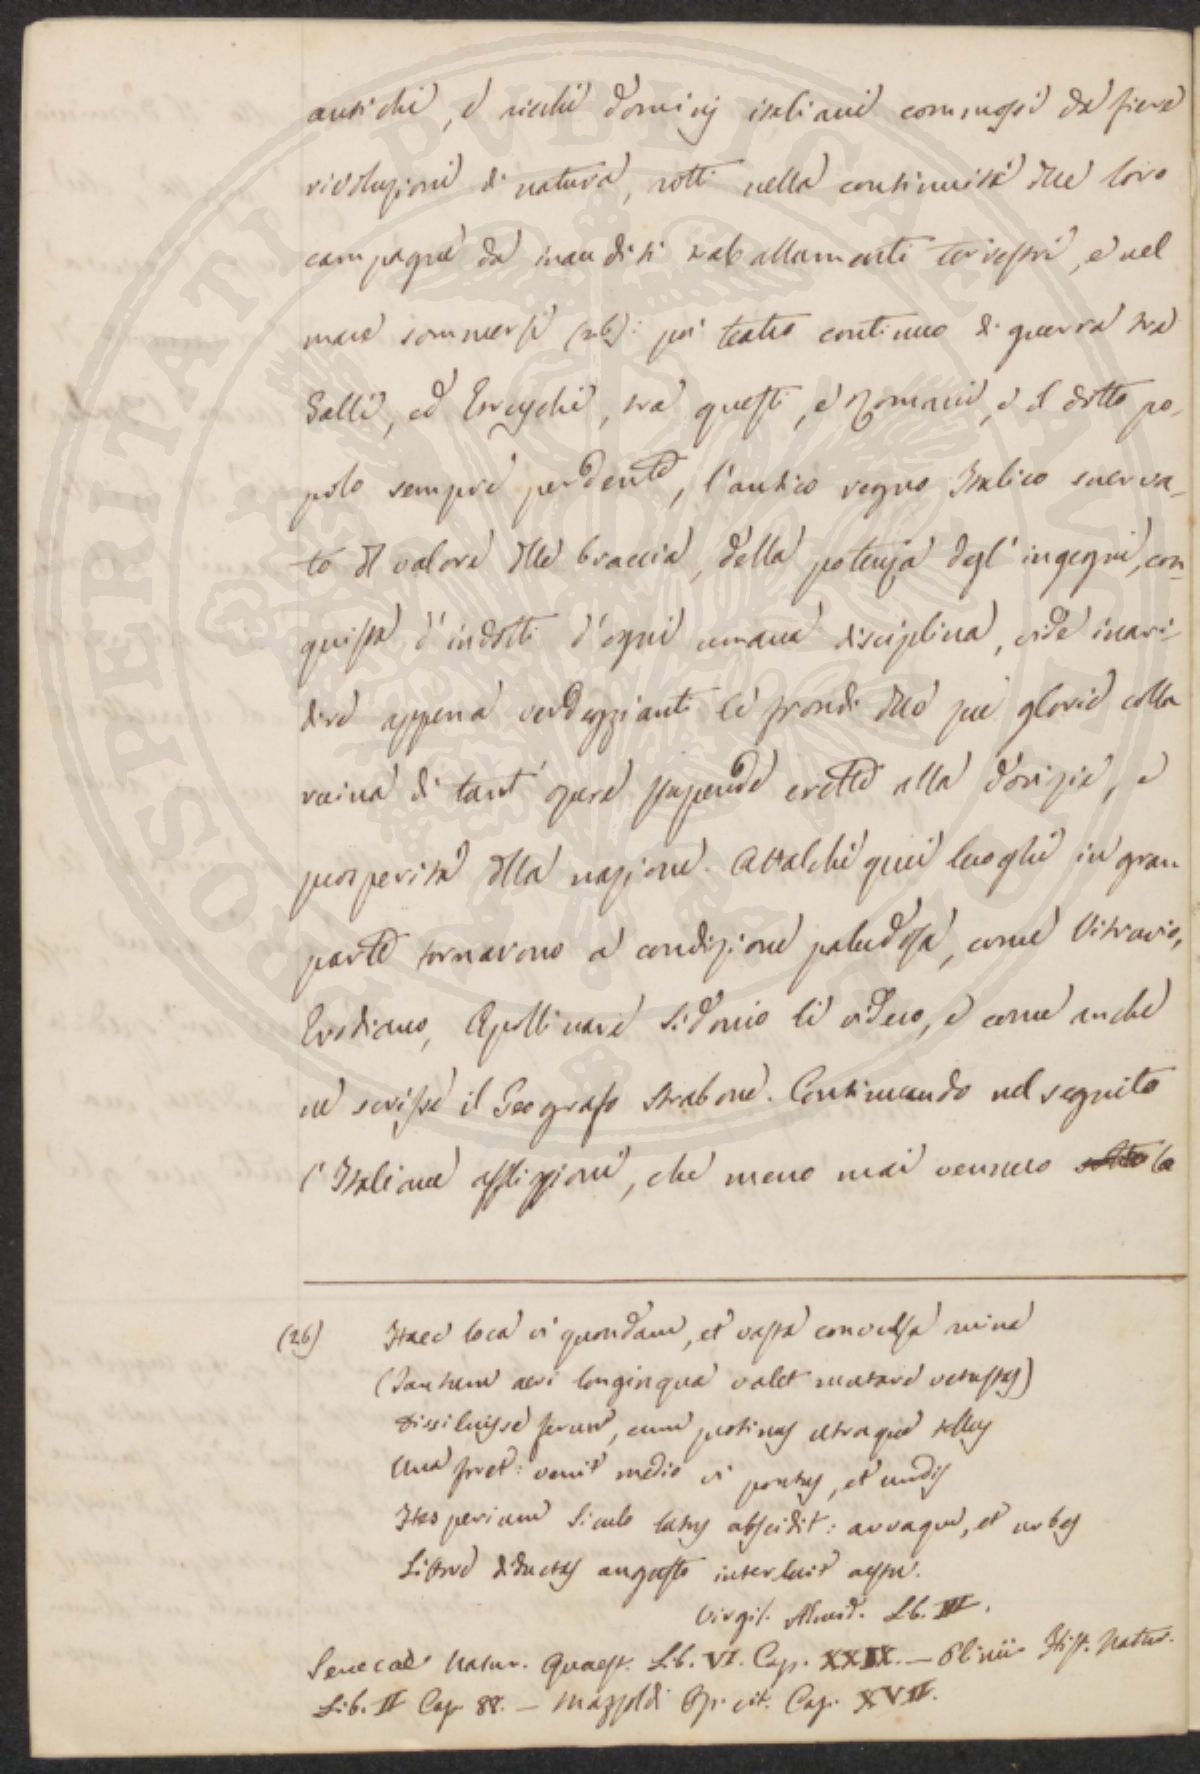 antichi, e ricchi dominj italiani commossi da fiere
rivoluzioni di natura, rotti nella continuità delle loro
campagne da inauditi traballamenti terrestri, e nel
mare sommersi (26): poi teatro continuo di guerra tra
Galli, ed Etruschi, tra questi, e Romani, e il dotto po-
polo sempre perdente, l'antico regno Italico snerva-
to del valore delle braccia, della potenza degl'ingegni, con-
quista d'indotti d'ogni umana disciplina, vide inari-
dire appena verdeggianti le frondi delle sue glorie colla
ruina di tant'opere stupende erette alla dovizia, e
prosperità della nazione. Attalchè quei luoghi in gran
parte tornarono a condizione paludosa, come Vitruvio,
Erodiano, Apollinare Sidonio li videro, e come anche
ne scrisse il Geografo Strabone. Continuando nel seguito
l'Italiane afflizioni, che meno mai vennero la
(26) Haec loca vi quondam, et vasta convulsa ruina
(Tantum aevi longinqua valet mutare vetustas)
Dissiluisse ferunt, cum protinus utraque tellus
Una foret: venit medio vi pontus, et undis
Hesperium Siculo latus abscidit: arvaque, et urbes
Littore diductas angusto interluit aestu.
Virgil. Aeneid. Lib. III.
Senecae Natur. Quaest. Lib. VI. Cap. XXIX. — Plinii Hist. Natur.
Lib. II Cap. 88. — Mazzoldi Op. cit. Cap. XVII.
PROSPERITATI PUBLICAE